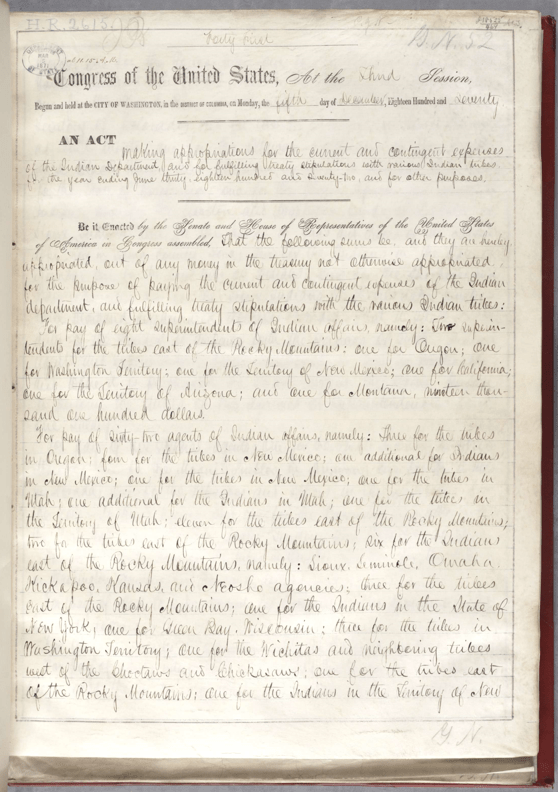 H.R. 2615.
Forty First
Congress of the United States, At the Third Session,
Begun and held at the CITY OF WASHINGTON, in the DISTRICT OF COLUMBIA, on Monday, the fifth day of December, Eighteen Hundred and Seventy
AN ACT making appropriations for the current and contingent expenses
of the Indian Department, and for fulfilling treaty stipulations with various Indian tribes
for the year ending June thirty, eighteen hundred and seventy-two, and for other purposes.
Be it Enacted by the Senate and House of Representatives of the United States
of America in Congress assembled, That the following sums be, and they are hereby,
appropriated, out of any money in the treasury not otherwise appropriated,
for the purpose of paying the current and contingent expenses of the Indian
department, and fulfilling treaty stipulations with the various Indian tribes:
For pay of eight superintendents of Indian affairs, namely: Two superin-
tendents for the tribes east of the Rocky Mountains; one for Oregon; one
for Washington Territory; one for the Territory of New Mexico; one for California;
one for the Territory of Arizona; and one for Montana, nineteen thou-
sand one hundred dollars.
For pay of sixty-two agents of Indian affairs, namely: Three for the tribes
in Oregon; four for the tribes in New Mexico; one additional for Indians
in New Mexico; one for the tribes in New Mexico; one for the tribes in
Utah; one additional for the Indians in Utah; one for the tribes in
the Territory of Utah; eleven for the tribes east of the Rocky Mountains;
two for the tribes east of the Rocky Mountains; six for the Indians
east of the Rocky Mountains, namely: Sioux, Seminole, Omaha,
Kickapoo, Kansas, and Neosho agencies; three for the tribes
east of the Rocky Mountains; one for the Indians in the State of
New York; one for Green Bay, Wisconsin; three for the tribes in
Washington Territory; one for the Wichitas and neighboring tribes
west of the Choctaws and Chickasaws; one for the tribes east
of the Rocky Mountains; one for the Indians in the Territory of New